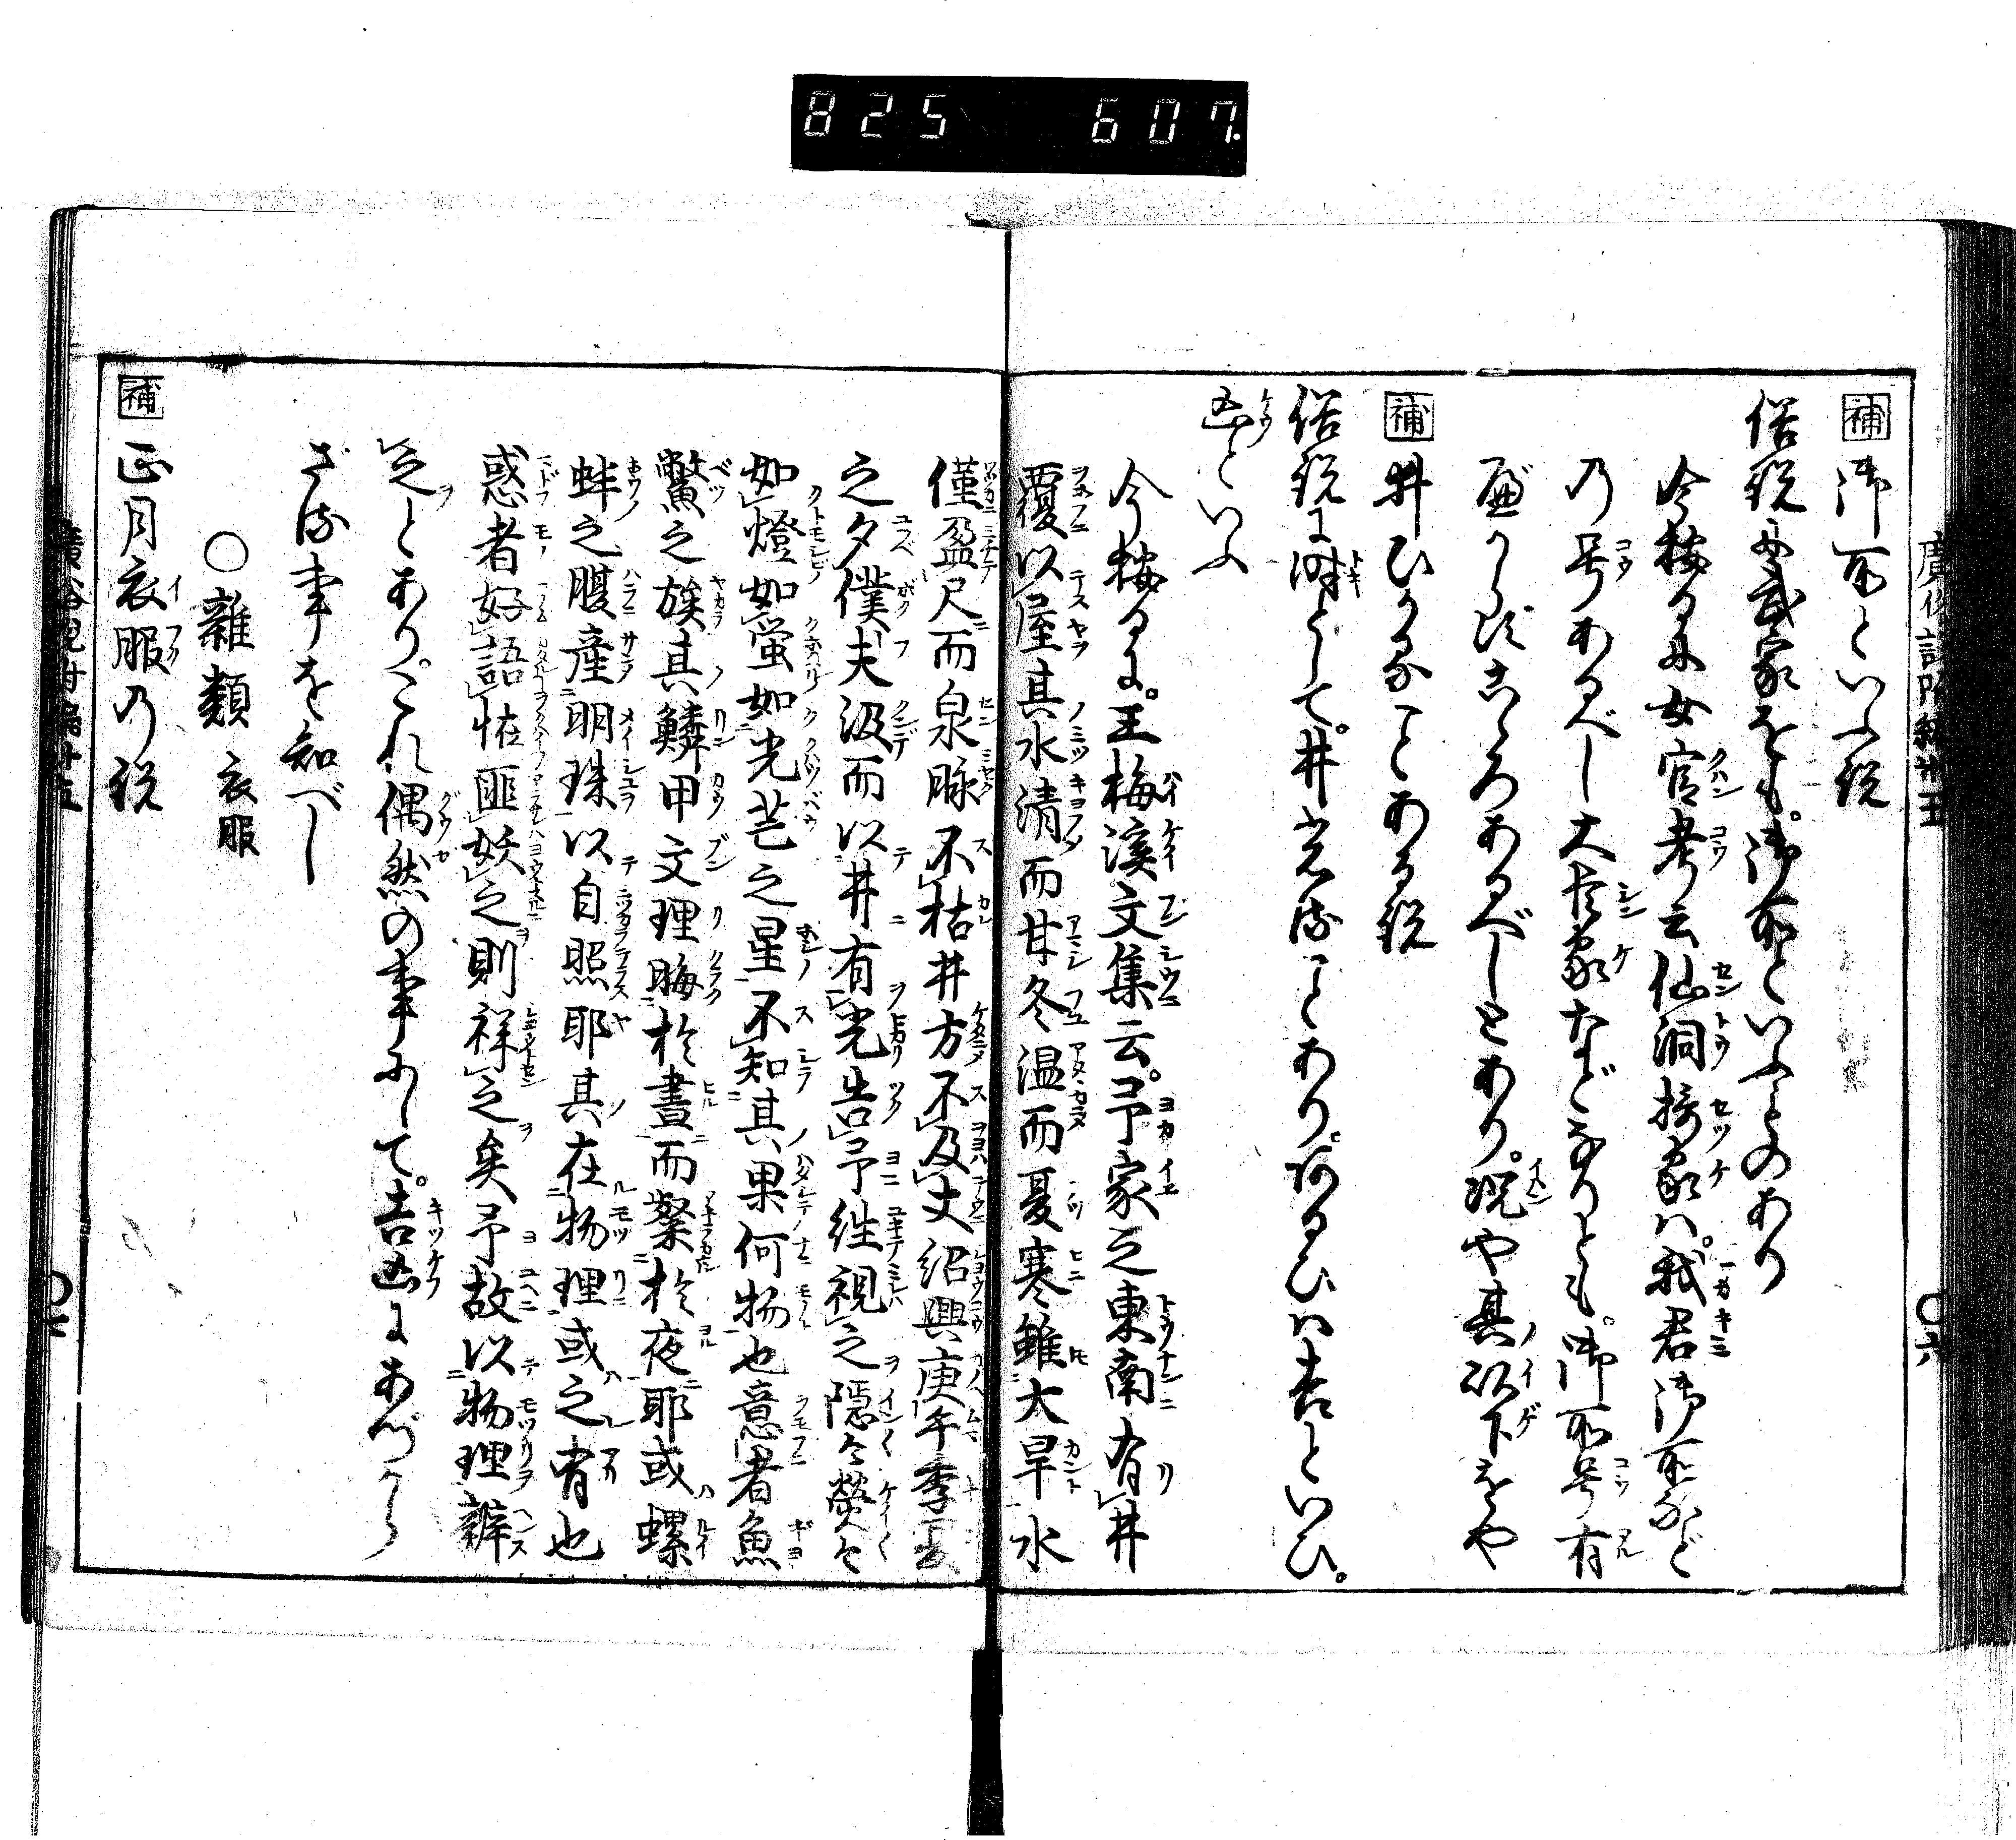 825 607.
補 御所といふ説
俗説に武家をも。御所といふものあり
今按るに女官考云仙洞摂家は。我君御所など
の号あるべし大臣家などなりとも。御所号有
べからずこゝろあるべしとあり。況や其以下をや
補 井ひかることある説
俗説に時として。井光ることあり。あるひは吉といひ。
凶といふ
今按るに。王梅溪文集云。予家之東南有井
覆以屋其水清而甘冬温而夏寒雖大旱水
僅盈尺而泉脉不枯井方不及丈紹興庚午季
之夕僕夫汲而以井有光告予往視之隠々熒々
如燈如蛍如光芒之星不知其果何物也意者魚
鱉之族其鱗甲文理晦於晝而粲於夜耶或螺
蚌之腹産明珠以自照耶其在物理或之有也
惑者好語怪匪妖之則祥之矣予故以物理辯
之とあり。これ偶然の事にして。吉凶にあづから
ざる事を知べし
○雜類 衣服
補 正月衣服の説